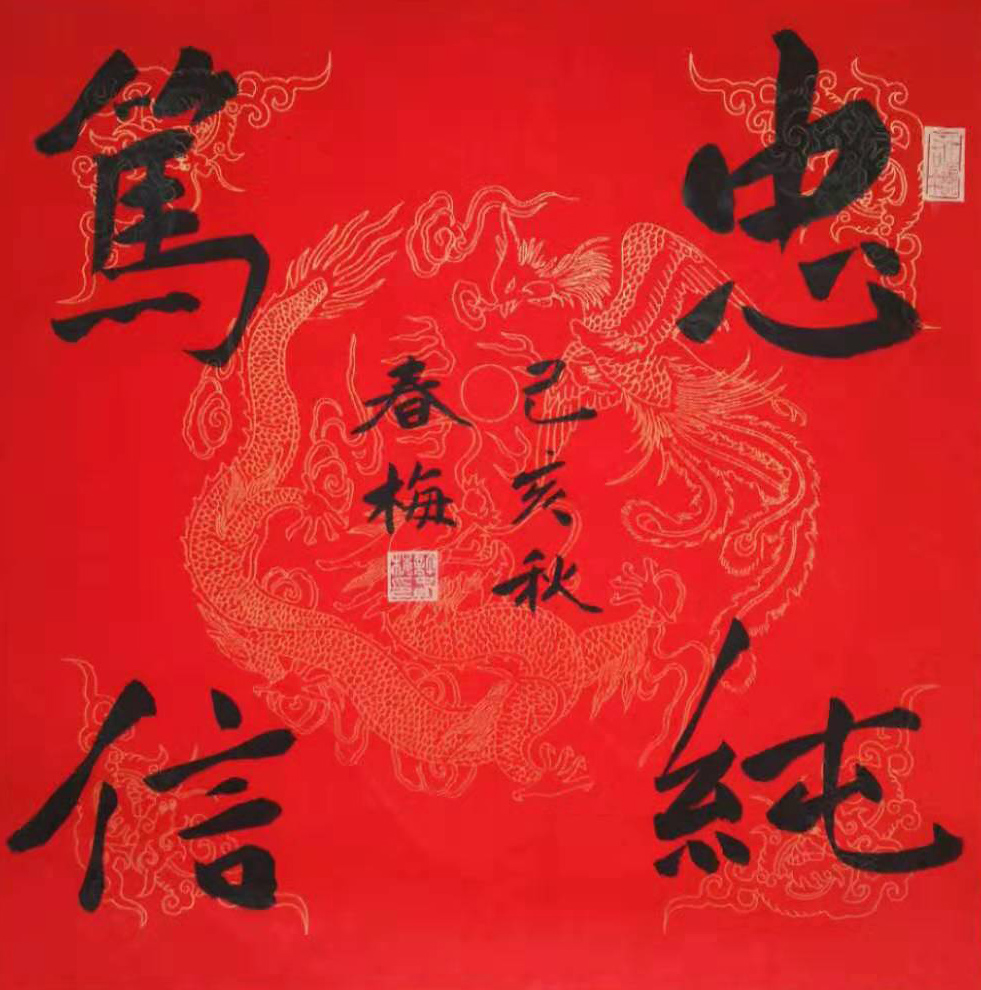 忠純
篤信
己亥秋
春梅